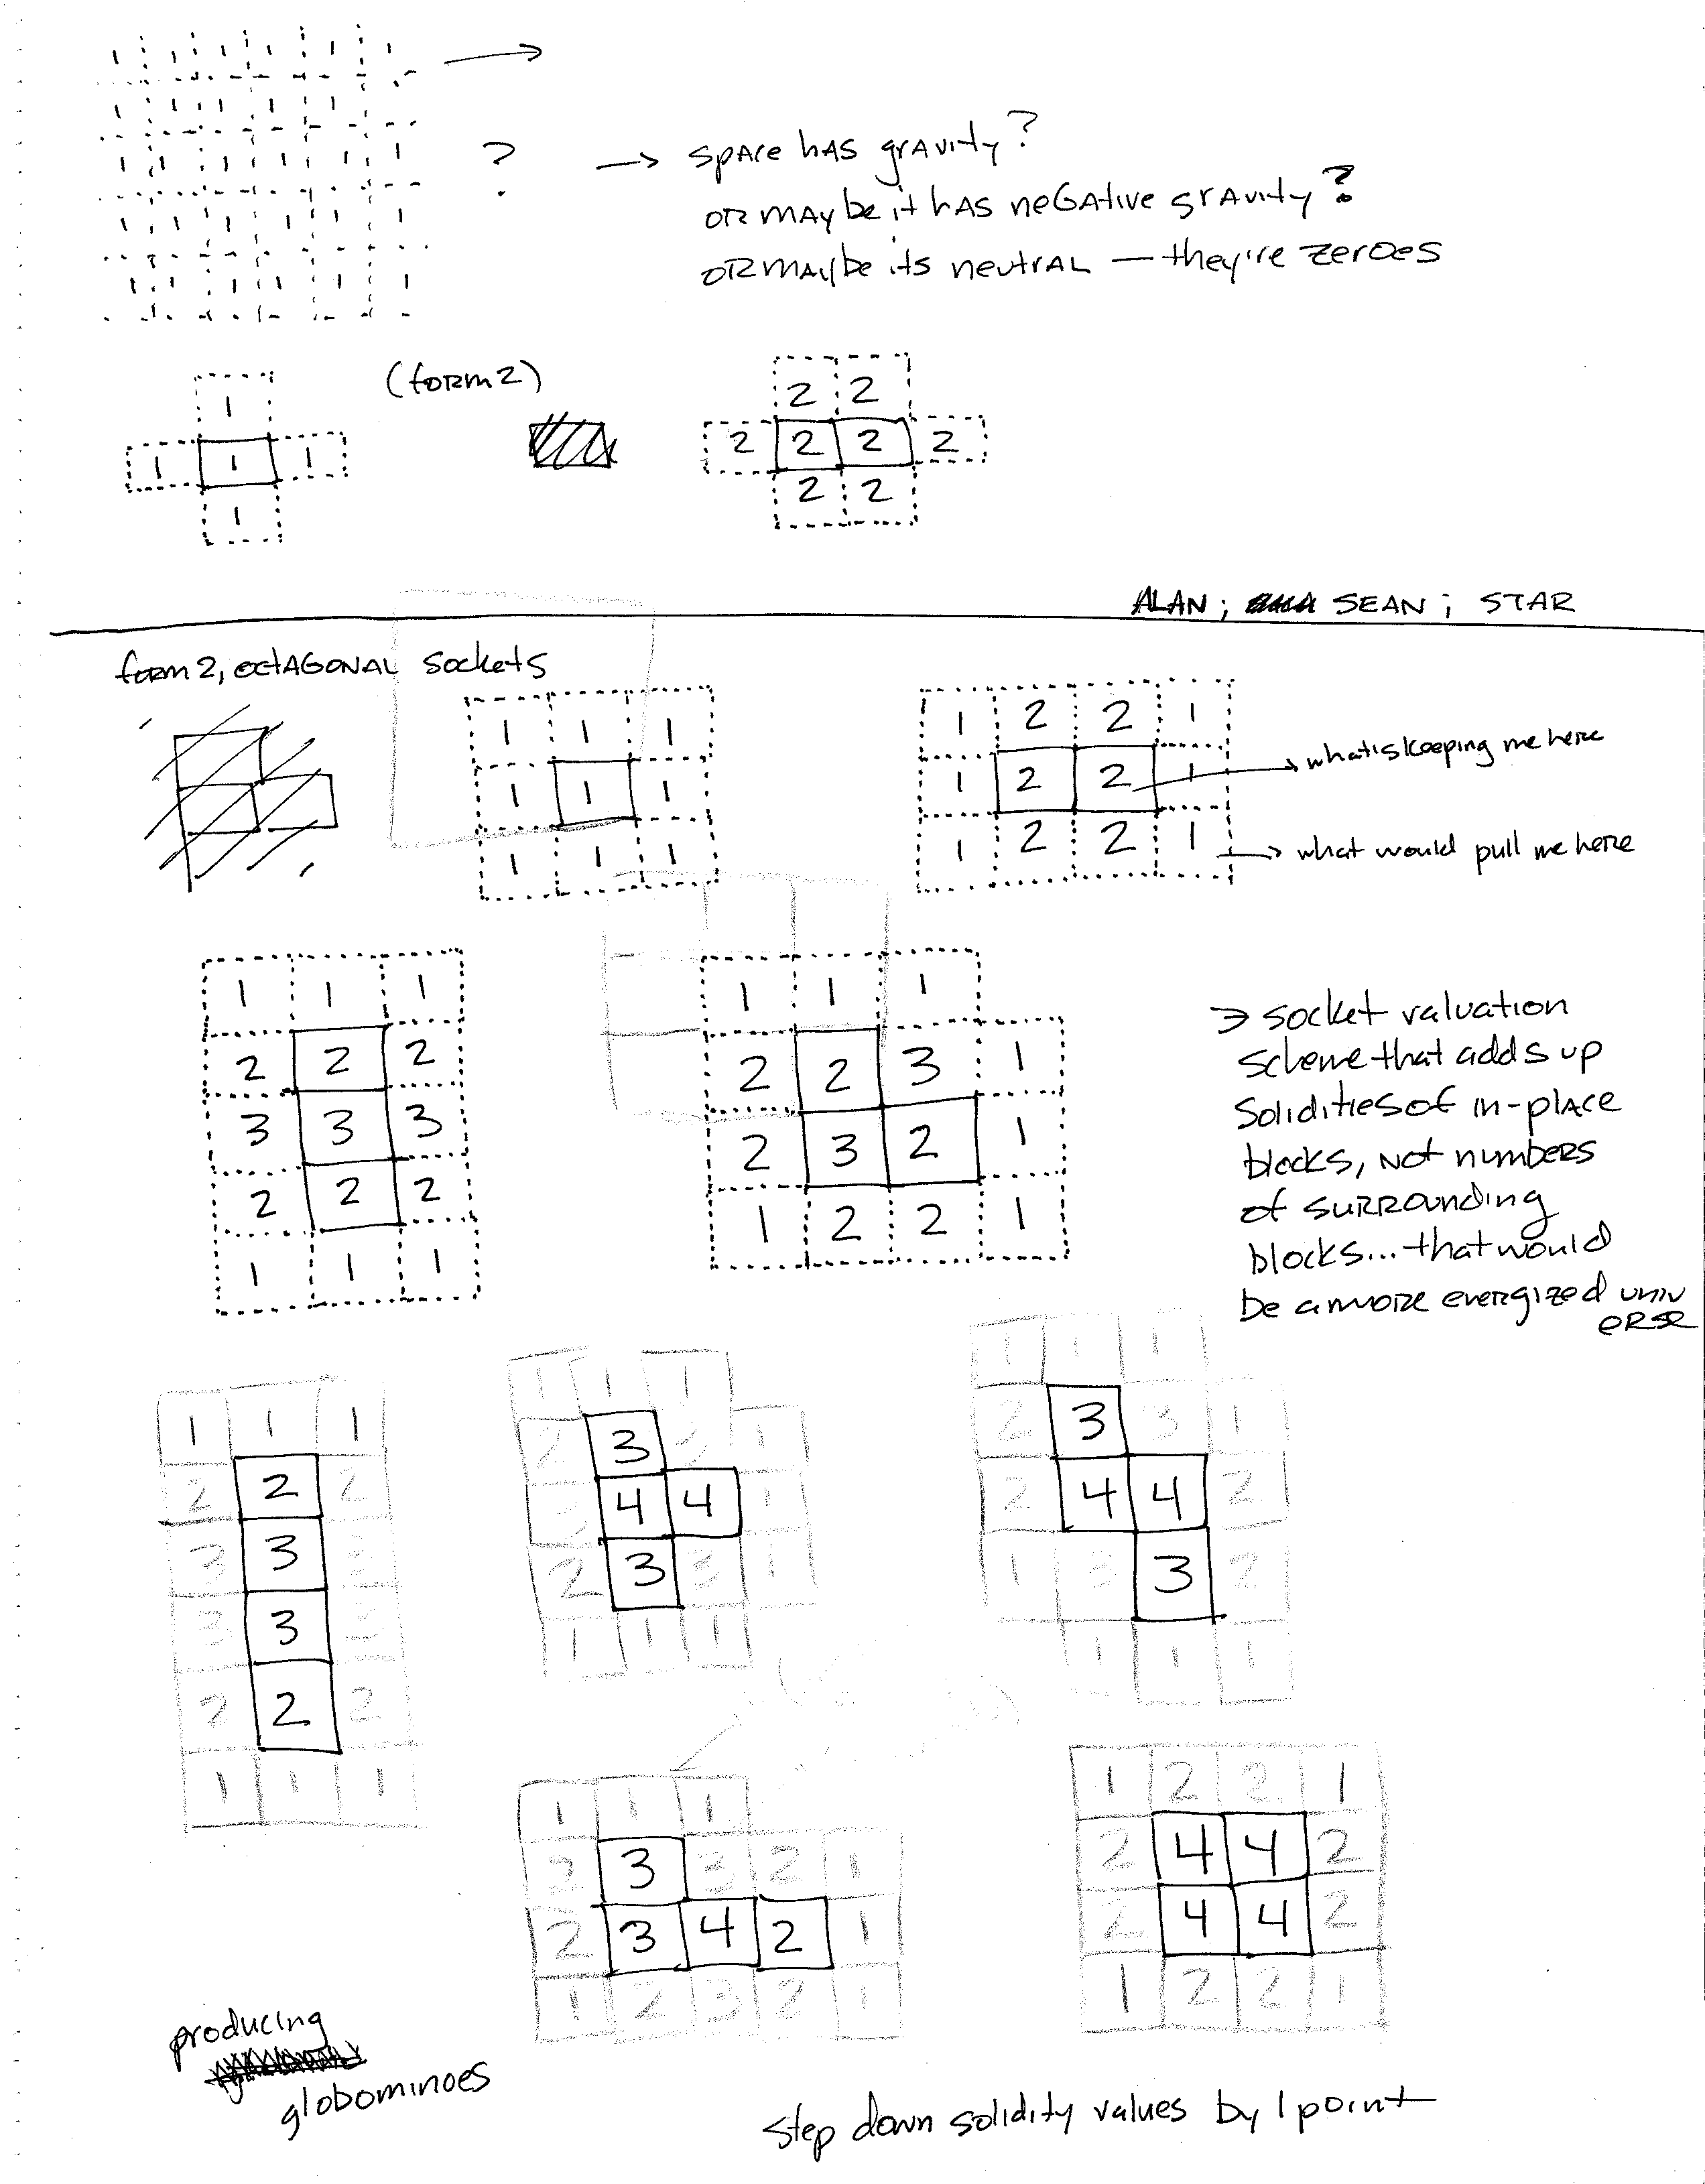 1 1 1 1 1 1 1
1 1 1 1 1 1
1 1 1 1 1 1 1
1 1 1 1 1 1
1 1 1 1 1 1
?
→ space has gravity?
or maybe it has negative gravity?
or maybe its neutral — they're zeroes
(form 2)
1
1 1 1
1
2 2
2 2 2 2
2 2
ALAN; SEAN; STAR
form 2, octagonal sockets
1 1 1
1 1 1
1 1 1
1 2 2 1
1 2 2 1
1 2 2 1
what's keeping me here
what would pull me here
1 1 1
2 2 2
3 3 3
2 2 2
1 1 1
1 1 1
2 2 3 1
2 3 2 1
1 2 2 1
→ socket valuation
scheme that adds up
solidities of in-place
blocks, not numbers
of surrounding
blocks... that would
be a more energized univ
erse
1 1 1
2 2 2
3 3 3
3 3 3
2 2 2
1 1 1
1 1 1
2 3 1
4 4 1
2 3 3 1
1 1 1
1 1 1
2 3 3 1
2 4 4 2
1 3 3 2
1 1 1
1 1 1
2 3 3 2 1
2 3 4 2 1
1 2 3 2 1
1 2 2 1
2 4 4 2
2 4 4 2
1 2 2 1
producing
globominoes
step down solidity values by 1 point